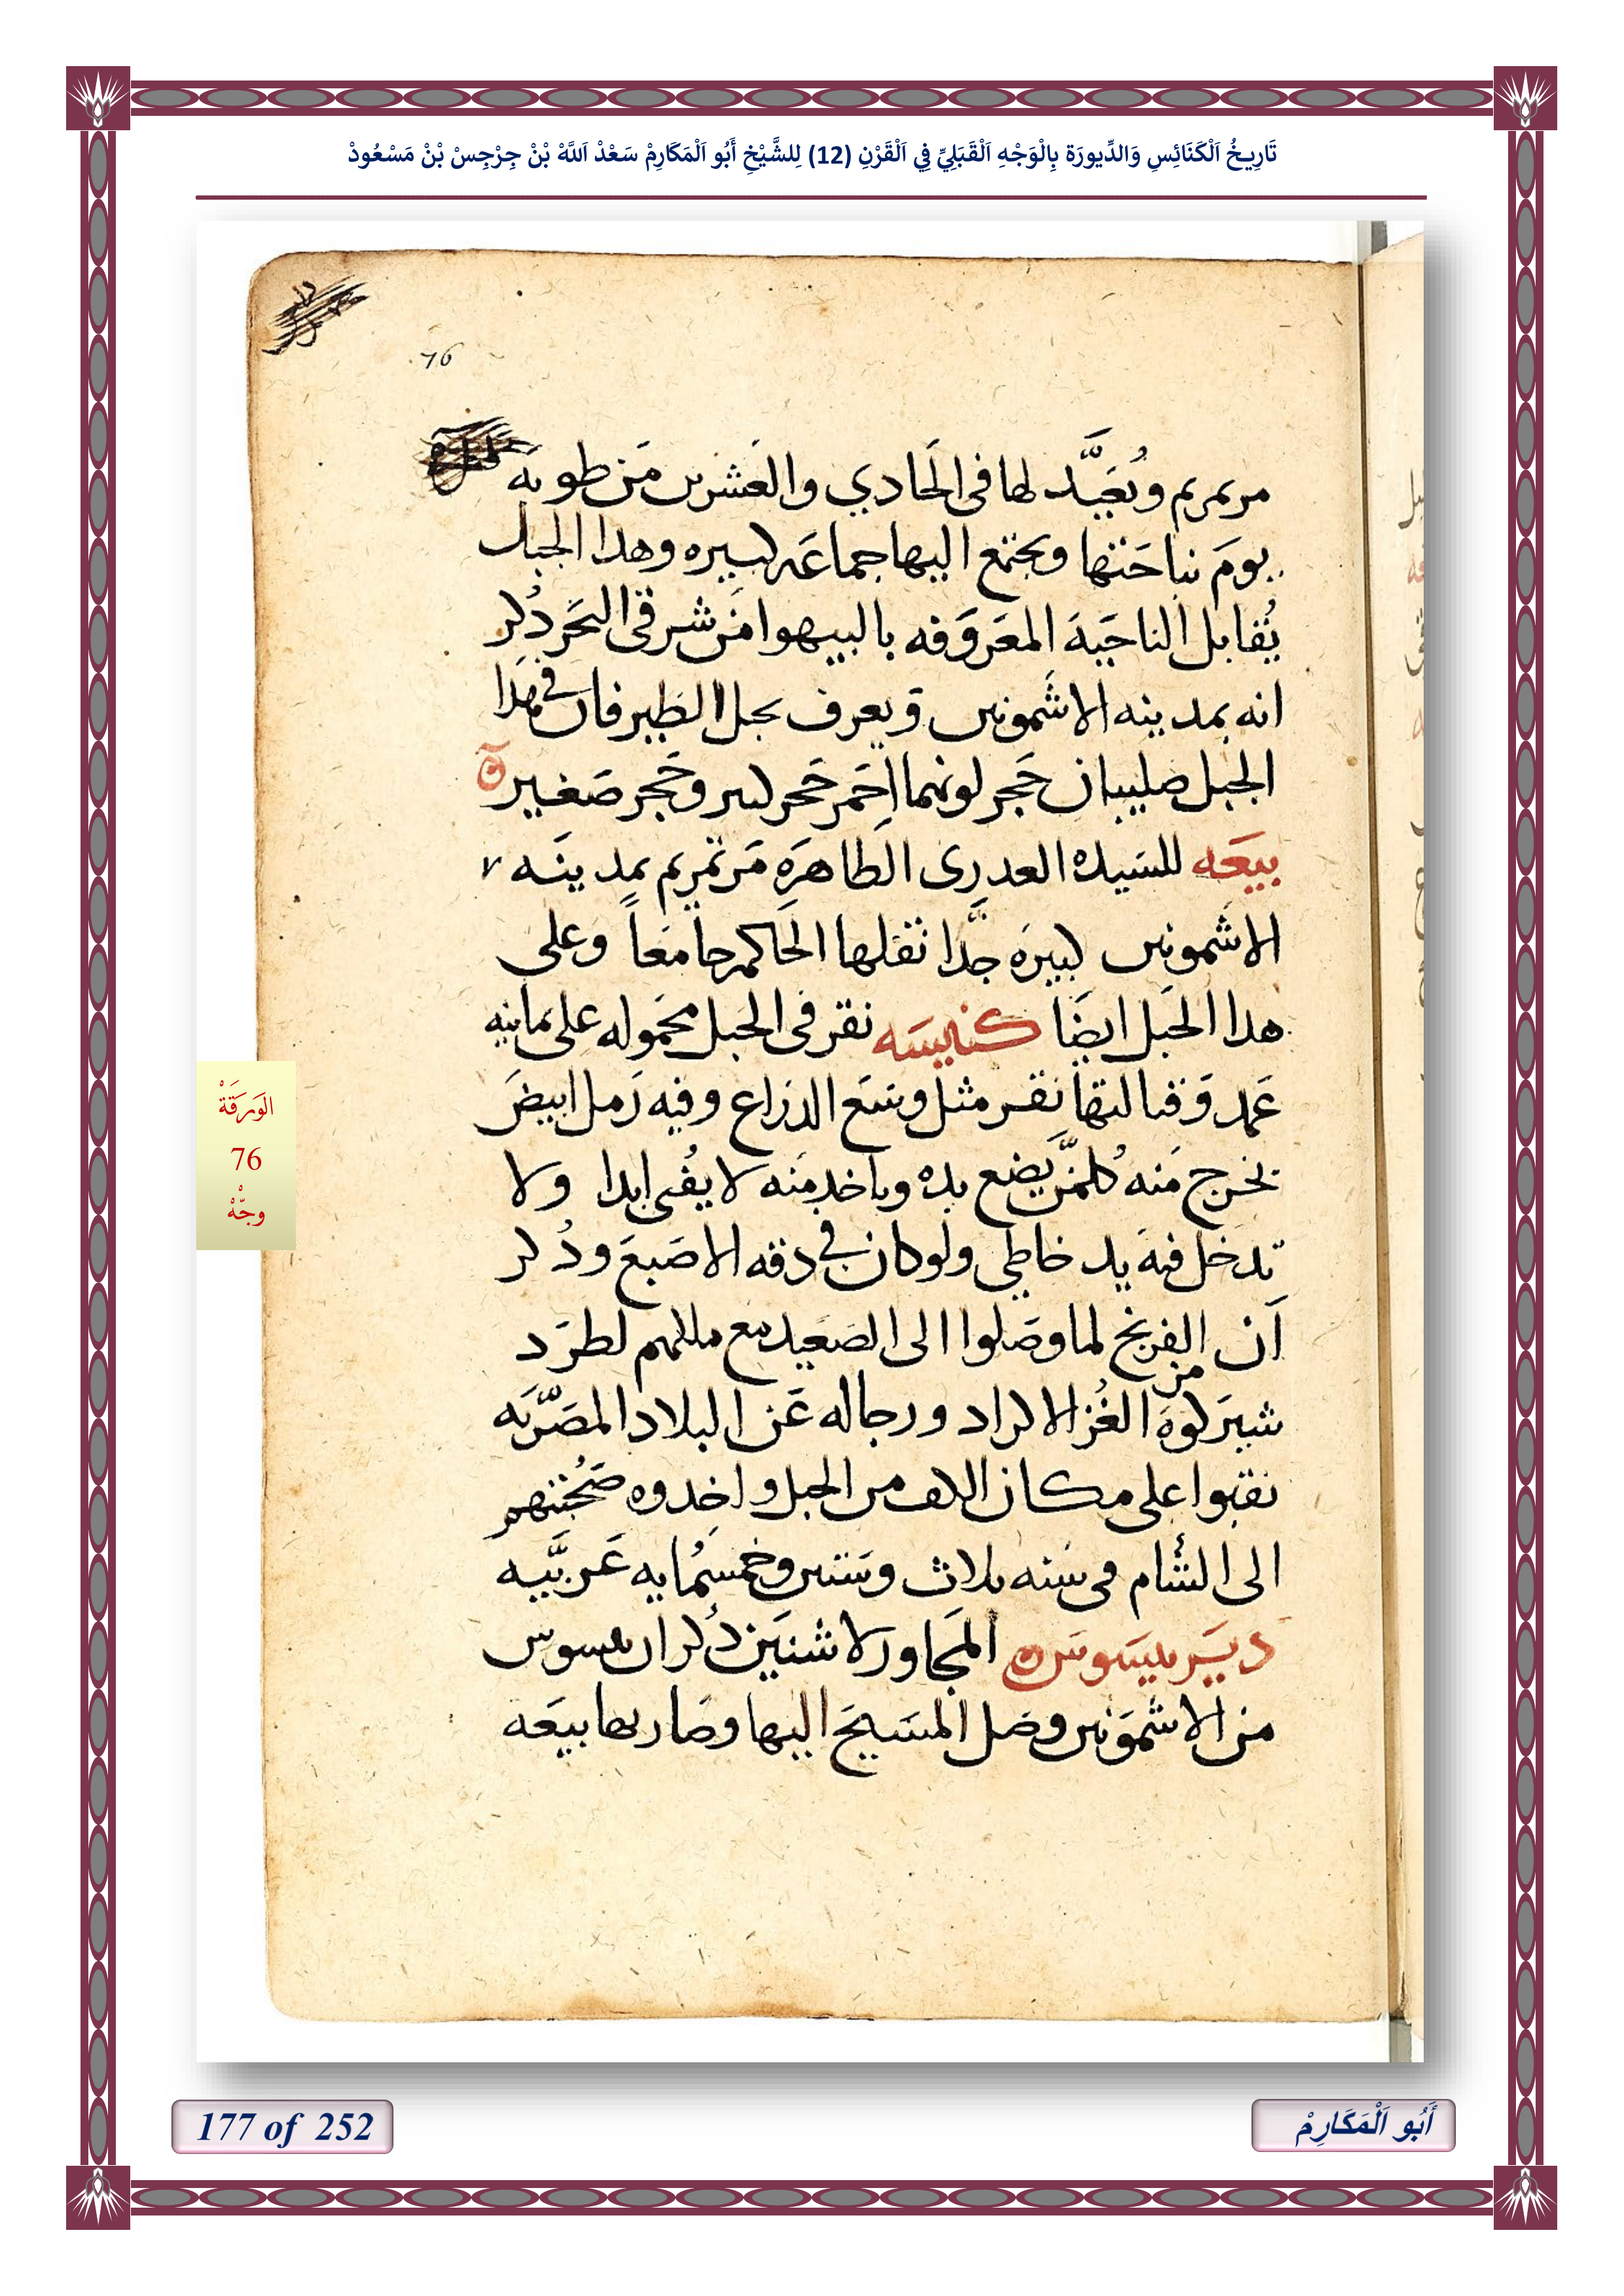 تَارِيخُ اَلْكَنَائِسِ وَالدِّيورَة بِالْوَجْهِ اَلْقَبَلِيِّ فِي اَلْقَرْنِ (12) لِلشَّيْخِ أَبُو اَلْمَكَارِمْ سَعْدْ اَللَّهْ بْنْ جِرْجِسْ بْنْ مَسْعُودْ
76
مرتمريم ونُعَيَّد لها فى الحَادي والعَشرين مَن طوبه
يومَ نياحَتها ويجتمع اليها جماعَه كبيره وهدا الجبل
يُقابل الناحَيهَ المعَروَفه بالبيهوا مَن شرقى البَحَر دُكر
انه بمدينه الاشَمونين ويعرف بجبل الطير فان فى هدا
الجبل صليبان حَجر لونهما احَمر حَجر كبير وحَجر صَغير
بيعَه للسَيده العدرى الطاهرَه مَرتمريم بمدينَه
الاشمونين كبيرَه جدًا نقلها الحَاكم جامَعاً وعلى
هدا الجَبل ايضًا كنيسَه نقر فى الجبل محَموله على تمانيه
عَمد وَقبالتها نقر مثل وسَع الدراع وفيه رَمل ابيضَ
يخرج مَنه كلمَن يضع يده وياخد منَه لا يفُنى ابدا ولا
تدخَل فيهَ يد خاطى ولو كان فى دقه الاصَبعَ ودُكر
اَن الفرنج لما وصَلوا الى الصَعيد مع مللهم لطرَد
شيرَكوهَ من الغُز الاكراد ورجاله عَن البلاد المصَريَه
نقبوا على مكان الكف من الجبل واخَدوه صَحُبتهم
الى الشام فى سَنه تلات وسَتين وخمسَمُايه عَربيَّه
ديَر بيسَوسَ المجَاور لاشنيَن دُكر ان بيسوس
من الاشموَنين وصَل المسَيحَ اليها وصَار بها بيعَه
الوَرَقَةْ
76
وجْهْ
177 of 252
أَبُو اَلْمَكَارِمْ